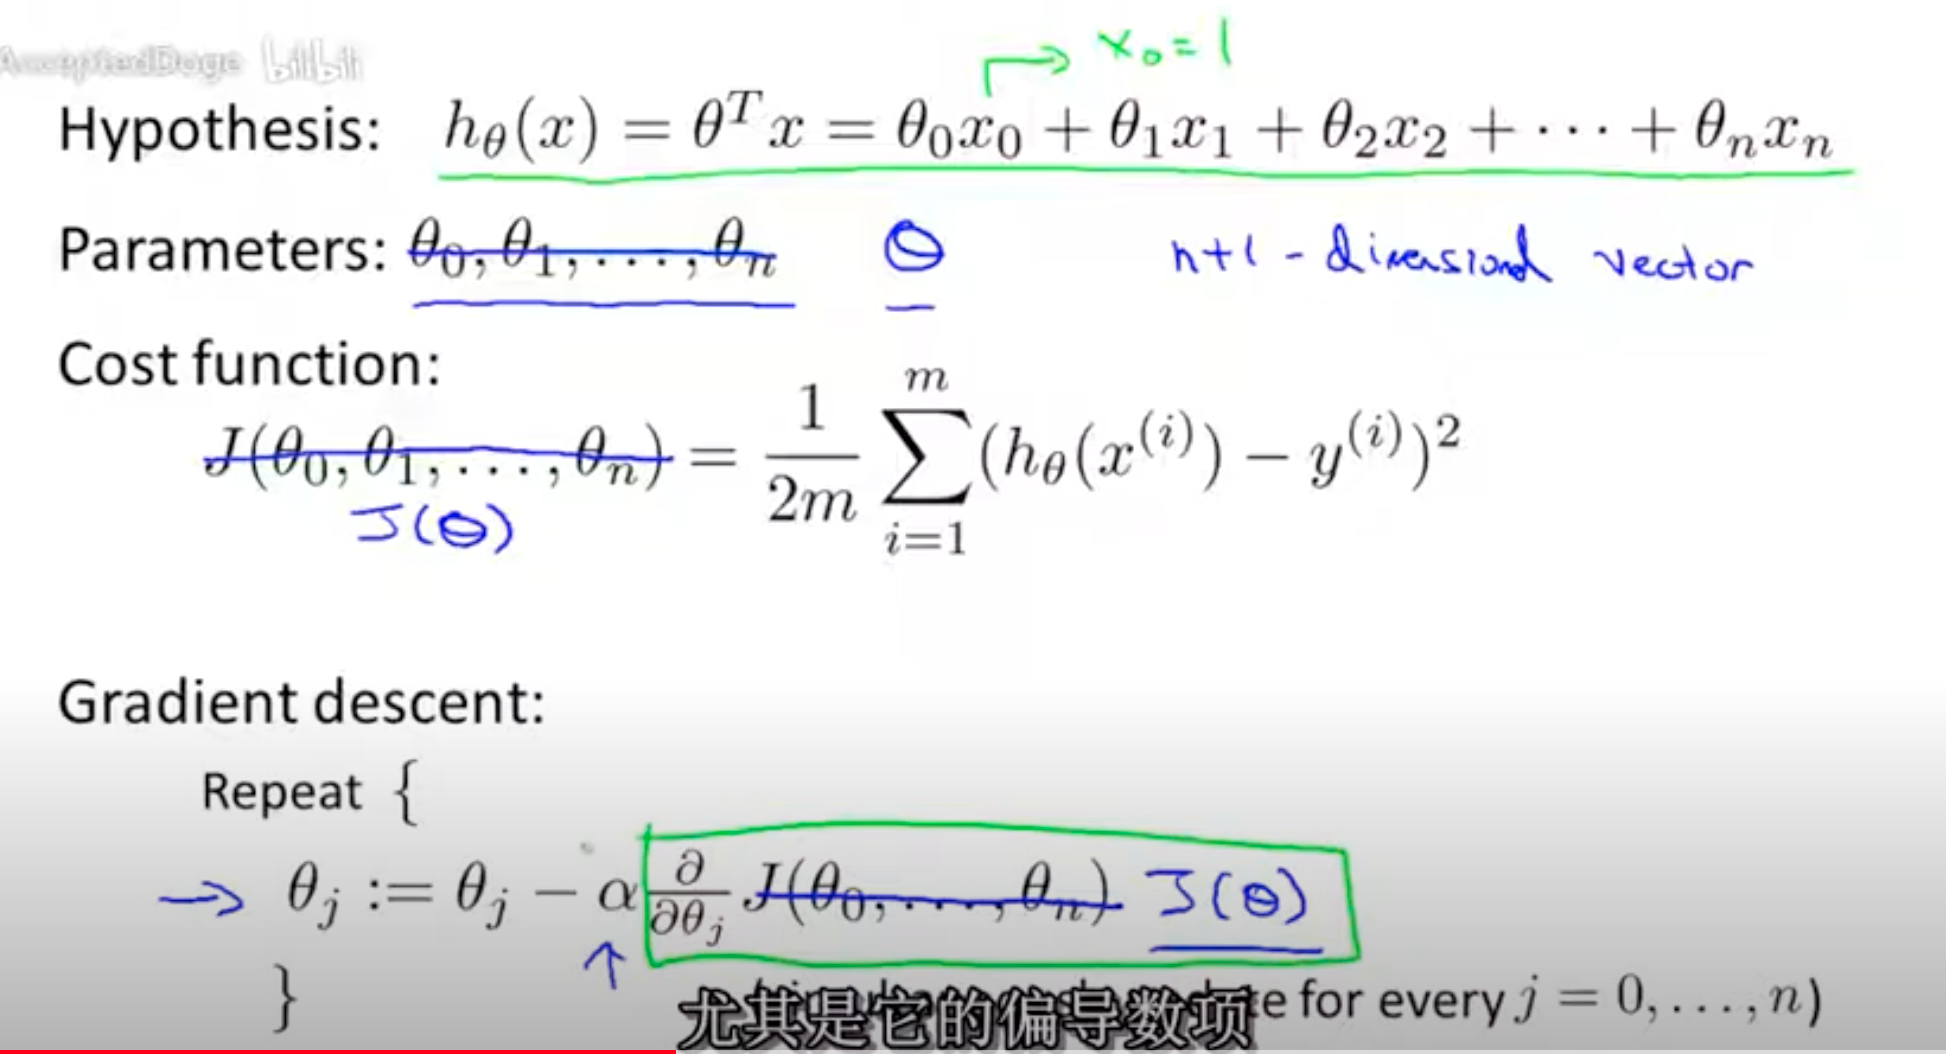 AcceptedDoge bilibili
x₀ = 1
Hypothesis: h_θ(x) = θ^T x = θ₀x₀ + θ₁x₁ + θ₂x₂ + ⋯ + θ_n x_n
Parameters: θ₀, θ₁, . . . , θ_n Θ n+1 - dimensional vector
Cost function:
J(θ₀, θ₁, . . . , θ_n) = \frac{1}{2m} \sum_{i=1}^{m} (h_θ(x^{(i)}) − y^{(i)})²
J(Θ)
Gradient descent:
Repeat {
→ θ_j := θ_j − α \frac{∂}{∂θ_j} J(θ₀, . . . , θ_n) J(Θ)
↑
} for every j = 0, . . . , n)
尤其是它的偏导数项